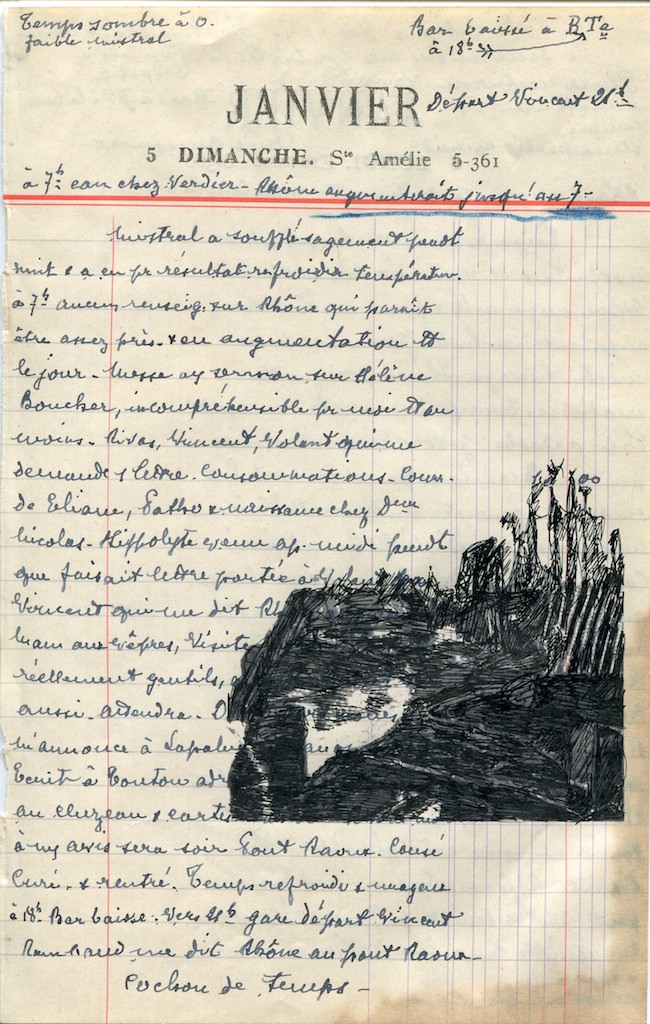 Temps sombre à 0.
faible mistral
Bar baissé à BTe
à 18h
JANVIER
Départ Vincent 21h
5 DIMANCHE. Ste Amélie 5-361
à 7h eau chez Verdier - Rhône augmenterait jusqu'au 7-
Mistral a soufflé sagement pendt
nuit & a eu pr résultat refroidir température.
à 7h aucun renseig. sur Rhône qui paraît
être assez près. & en augmentation tt
le jour. Messe sermon sur Hélène
Boucher, incompréhensible pr moi tt au
moins. Rivas, Vincent, Volant qui me
demande 1 lettre. Consommations.
de Eliane, & naissance chez
Nicolas. Hippolyte venu ap. midi pendt
que faisait lettre portée à
Vincent qui me dit
Mam aux vêpres, Visite
réellement gentils,
aussi. attendra.
m'annonce à
Ecrit à Tonton
au & cartes
à mon avis sera soir Pont Raoux. Causé
Curé. & rentré. Temps refroidi & nuageux
à 18h Bar baisse. Vers 21h gare départ Vincent
me dit Rhône au pont Raoux -
Cochon de temps -